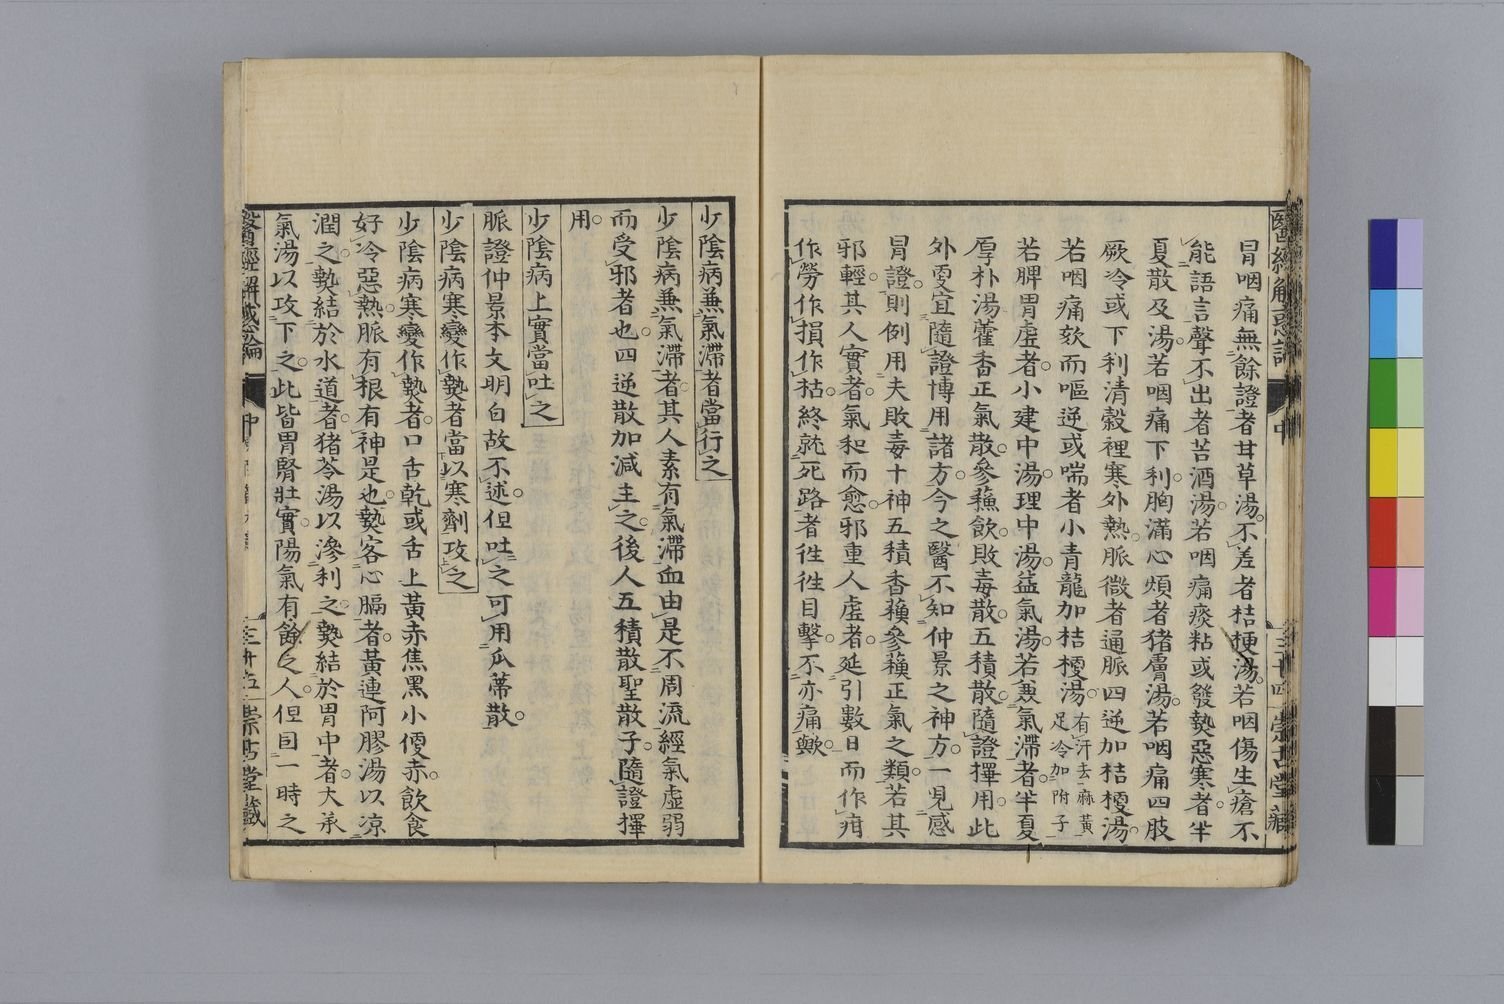 醫經解惑論
中
三十四
崇古堂藏
冒咽痛無餘證者甘草湯不差者桔梗湯若咽傷生瘡不
能語言聲不出者苦酒湯若咽痛痰粘或發𤍠惡寒者半
夏散及湯若咽痛下利胸滿心煩者猪膚湯若咽痛四肢
厥冷或下利清穀裡寒外熱脈微者通脈四逆加桔梗湯
若咽痛欬而嘔逆或喘者小青龍加桔梗湯有汗去麻黃
足冷加附子
若脾胃虛者小建中湯理中湯益氣湯若兼氣滯者半夏
厚朴湯藿香正氣散參蘓飲敗毒散五積散隨證擇用此
外更宜隨證博用諸方今之醫不知仲景之神方一見感
冒證則例用夫敗毒十神五積香蘓參蘓正氣之類若其
邪輕其人實者氣和而愈邪重人虛者延引數日而作疳
作勞作損作枯終就死路者徃徃目擊不亦痛歟
少陰病兼氣滯者當行之
少陰病兼氣滯者其人素有氣滯血由是不周流經氣虛弱
而受邪者也四逆散加減主之後人五積散聖散子隨證擇
用
少陰病上實當吐之
脈證仲景本文明白故不述但吐之可用瓜蒂散
少陰病寒變作𤍠者當以寒劑攻之
少陰病寒變作𤍠者口舌乾或舌上黃赤焦黑小便赤飲食
好冷惡熱脈有根有神是也𤍠客心膈者黃連阿膠湯以凉
潤之𤍠結於水道者猪苓湯以滲利之𤍠結於胃中者大承
氣湯以攻下之此皆胃腎壯實陽氣有餘之人但因一時之
醫經解惑論
中
三十五
崇古堂藏